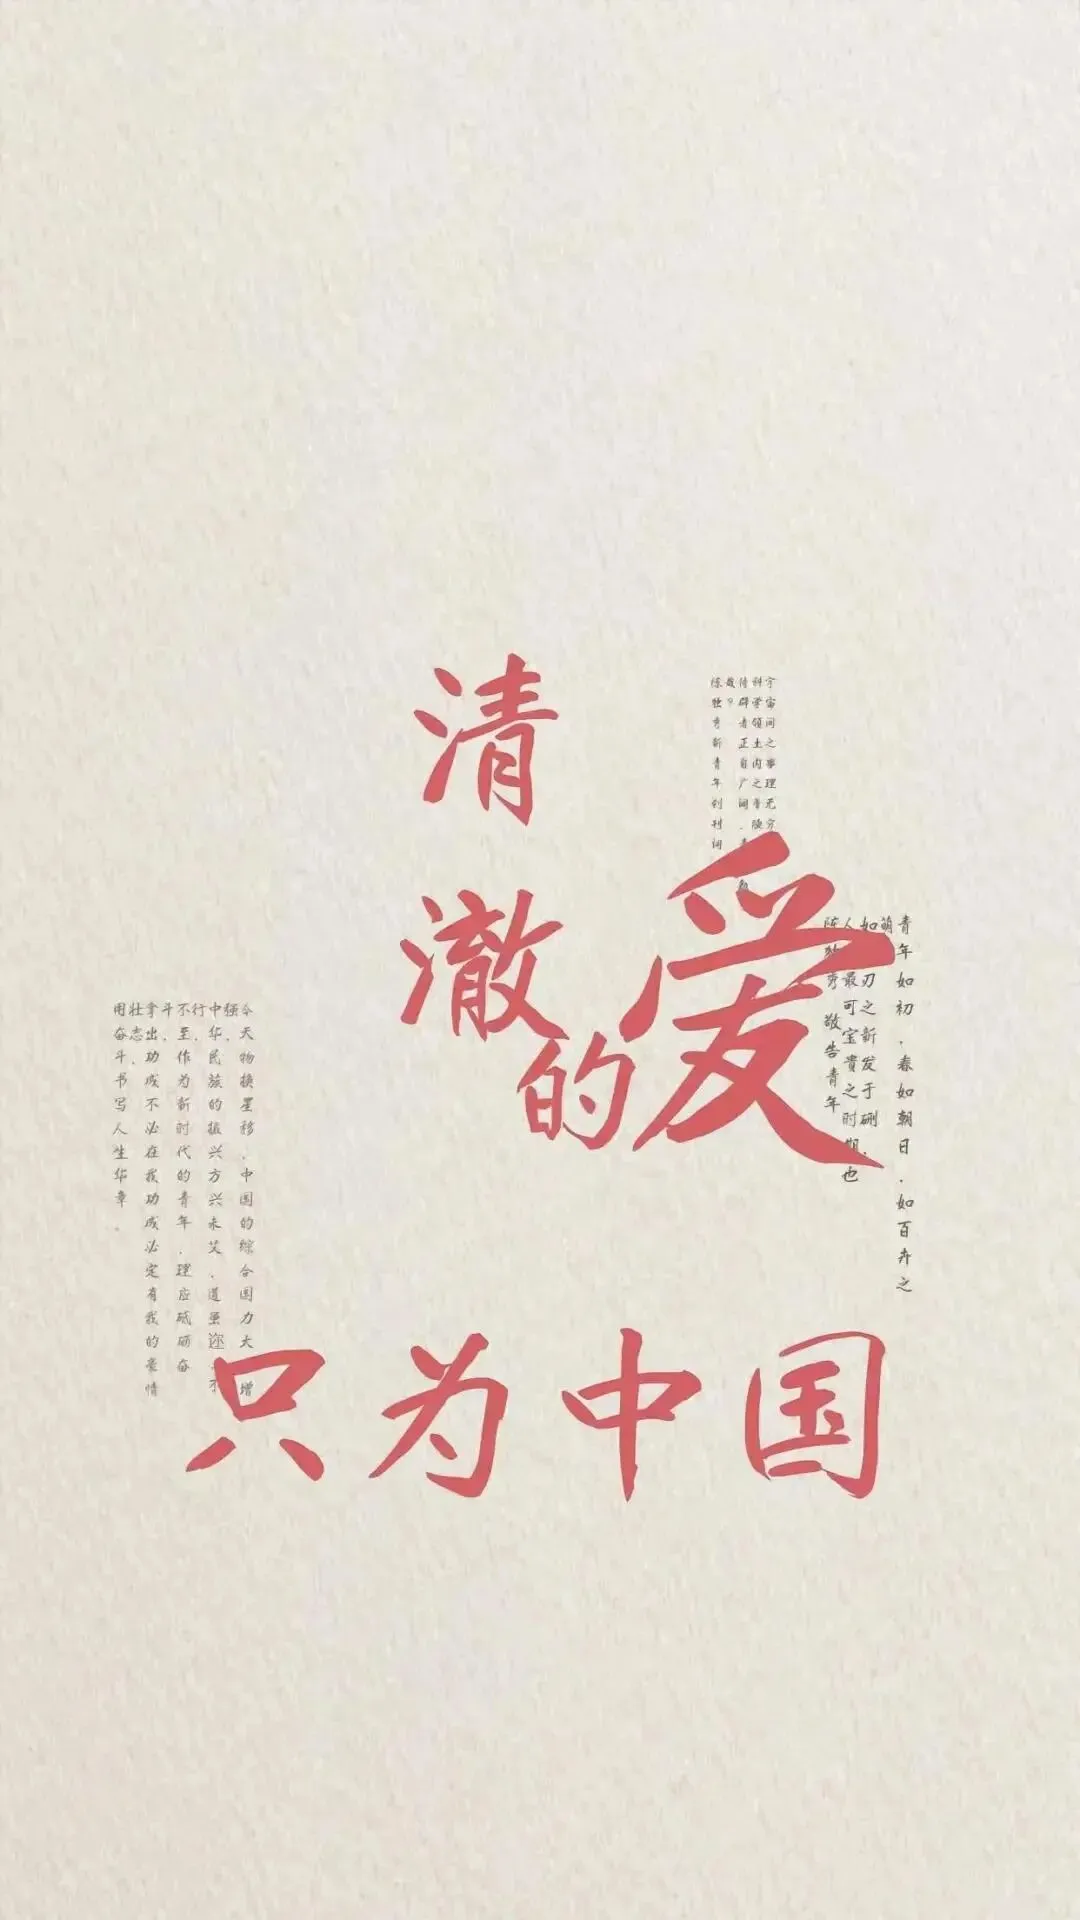 清澈的爱
只为中国
宇宙间之事理无穷
科学领土内之膏腴
待辟者正自广阔、
陈独秀新青年创刊词
青年如初、春如朝日、如百卉之
萌
如刃之新发于硎、
人最可宝貴之时期也
陈独秀 敬告青年
今天物换星移、中国的综合国力大增
强、
中华民族的振兴方兴未艾、道虽迩、不
行、
不至、作为新时代的青年、理应砥砺奋
斗、
拿出、功成不必在我功成必定有我的豪情
壮志、
用奋斗书写人生华章。